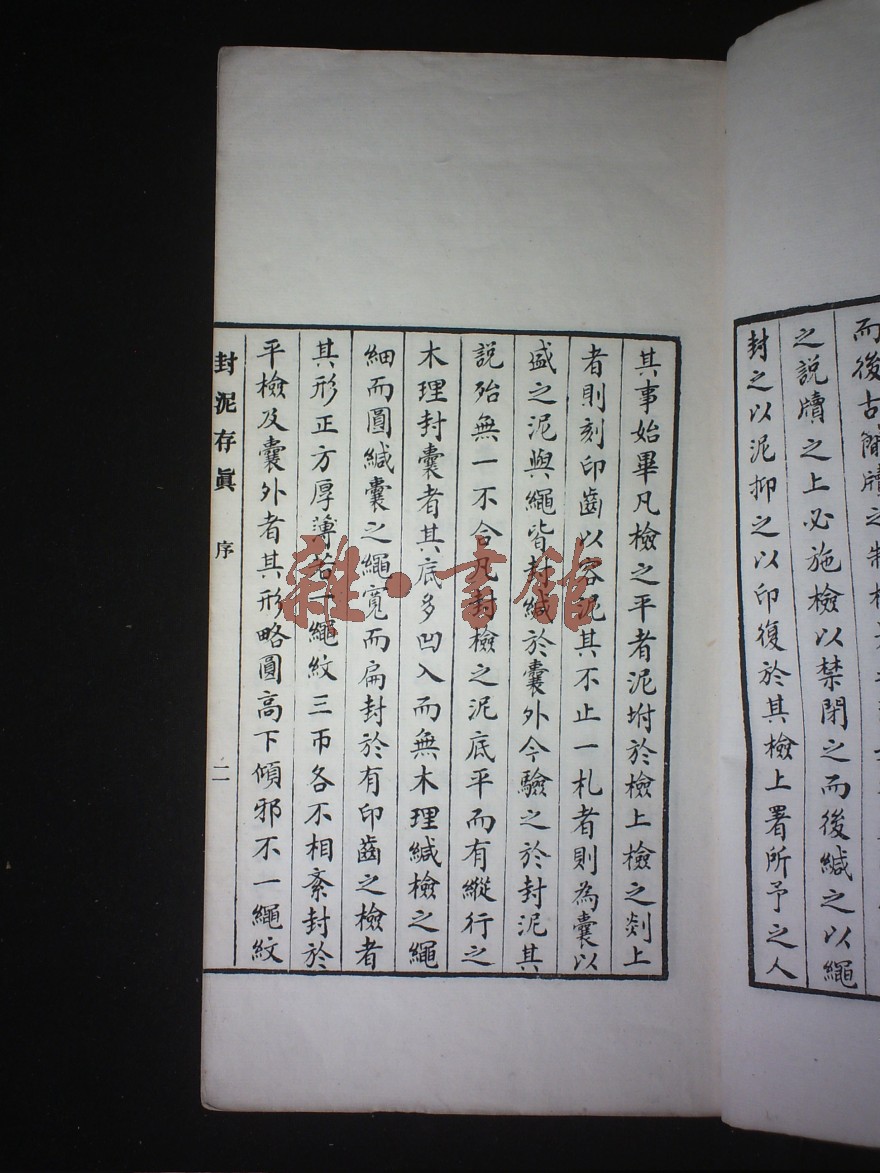 而後古簡牘之制
之說牘之上必施檢以禁閉之而後緘之以繩
封之以泥抑之以印復於其檢上署所予之人
其事始畢凡檢之平者泥坿於檢上檢之剡上
者則刻印齒以容泥其不止一札者則為囊以
盛之泥與繩皆封緘於囊外今驗之於封泥其
說殆無一不合凡封檢之泥底平而有縱行之
木理封囊者其底多凹入而無木理緘檢之繩
細而圓緘囊之繩寬而扁封於有印齒之檢者
其形正方厚薄若一繩紋三帀各不相紊封於
平檢及囊外者其形略圓高下傾邪不一繩紋
封泥存眞 序 二
雜·書館